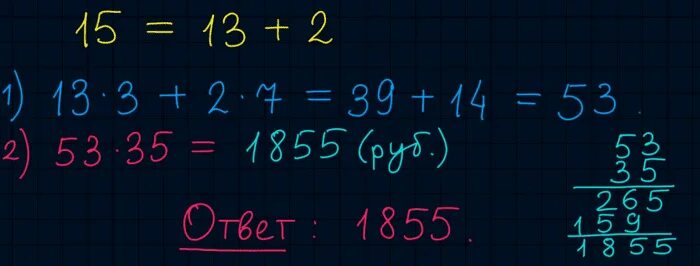 15 = 13 + 2
1) 13·3 + 2·7 = 39 + 14 = 53.
2) 53·35 = 1855 (руб.)
53
35
265
159
1855
Ответ: 1855.